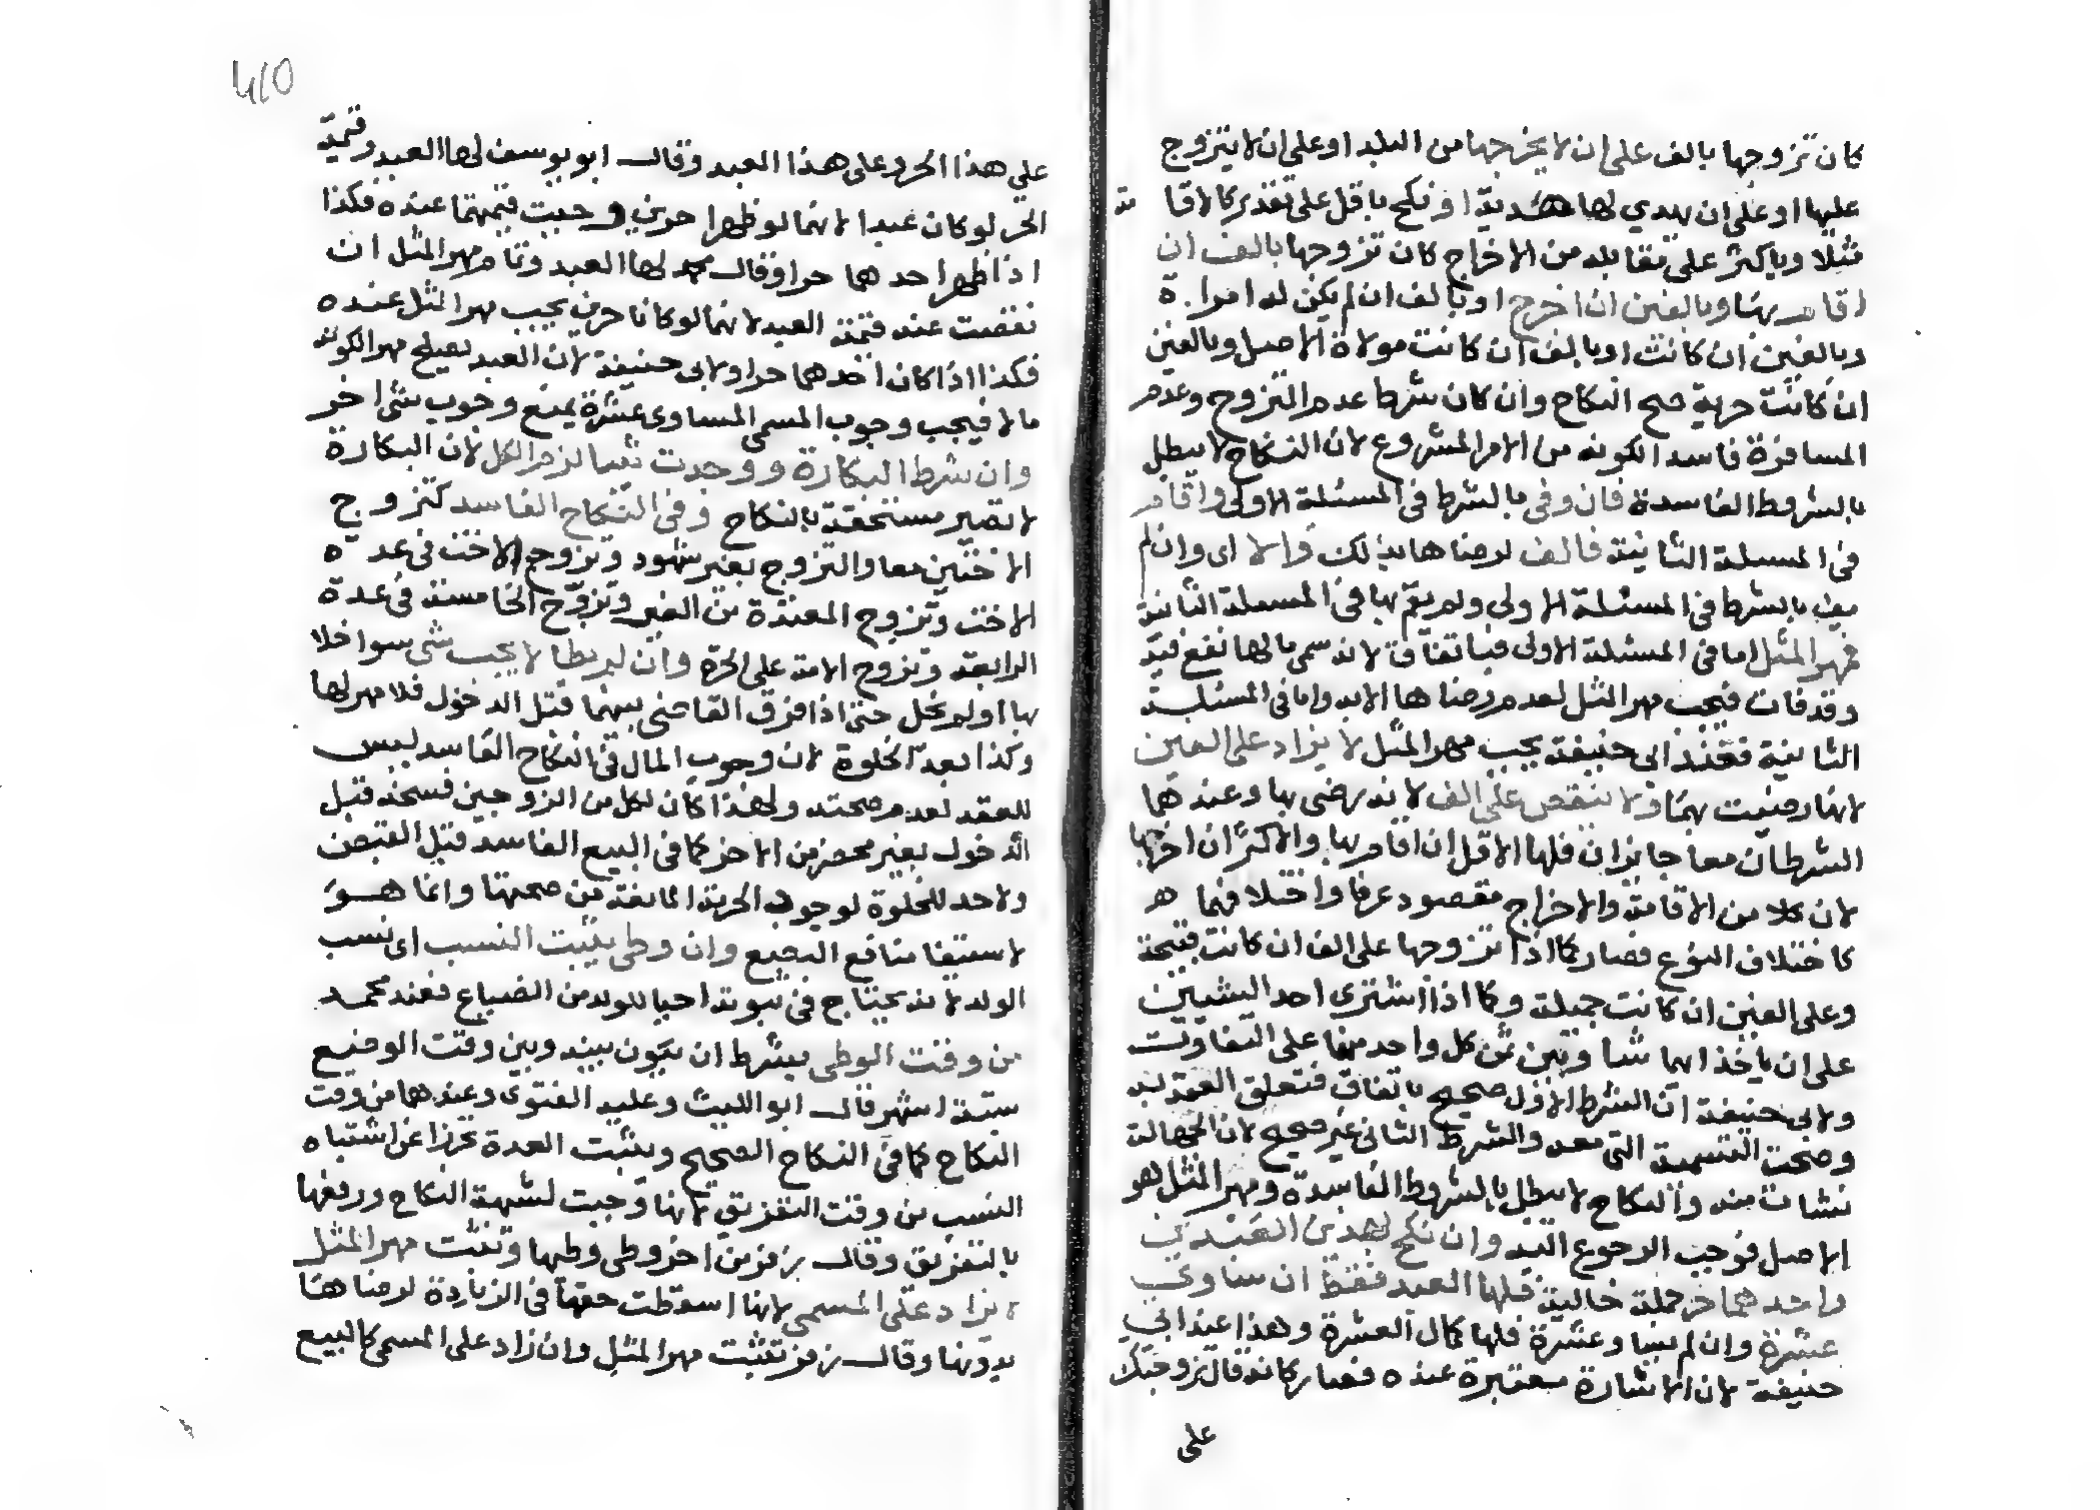 كان تزوجها بالف على ان لا يخرجها من البلد او على ان لا يتزوج
عليها او على ان يهدي لها هدية او نكح باقل على تقدير كالاقا مة
مثلا وباكثر على تقابله من الاخراج كان تزوجها بالف ان
اقام بها وبالفين ان اخرج او بالف ان لم يكن له امراة
وبالفين ان كانت او بالف ان كانت مولاة الاصل وبالفين
ان كانت حرية صح النكاح وان كان شرط عدم التزوج وعدم
المسافرة فاسد الكونه من الامر المشروع لان النكاح لا يبطل
بالشروط الفاسدة فان وفى بالشرط في المسئلة الاولى واقام
في المسئلة الثانية فالف لرضاها بذلك والا اى وان لم
يف بالشرط في المسئلة الاولى ولم يقم بها في المسئلة الثانية
فمهر المثل اما في المسئلة الاولى فباتفاق لانه سمى مالها نفع فيه
وقد فات فيجب مهر المثل لعدم رضاها الابه واما في المسئلة
الثانية فعند ابى حنيفة يجب مهر المثل لا يزاد على الفين
لانها رضيت بهما ولا ينقص على الف لانه يرضى بها وعندهما
الشرطان معا جايزان فلها الاقل ان اقام بها والاكثر ان اخرجها
لان كلا من الاقامة والاخراج مقصود عرفا واختلافهما هـ
كاختلاف النوع فصار كما اذا تزوجها على الف ان كانت قبيحة
وعلى الفين ان كانت جميلة وكما اذا اشترى احد الشيئين
على ان ياخذ ايهما شا وبين ثمن كل واحد منهما على التفاوت
ولابى حنيفة ان الشرط الاول صحيح باتفاق فتعلق العقد به
وصحت التسمية التى معه والشرط الثانى غير صحيح لان الجهالة
نشات منه والنكاح لا يبطل بالشروط الفاسدة ومهر المثل هو
الاصل فوجب الرجوع اليه وان نكح بهذين العبدين
واحدهما حر جملة حالية فلها العبد فقط ان ساوى
عشرة وان لم يساو عشرة فلها كمال العشرة وهذا عند ابي
حنيفة لان الاشارة معتبرة عنده فصار كانه قال تزوجتك
على
410
على هذا الحر وعلى هذا العبد وقال ابو يوسف لها العبد وقيمة
الحر لو كان عبدا لانهما لو ظهرا حرين وجبت قيمتهما عنده فكذا
اذا ظهر احدهما حرا وقال محمد لها العبد وتمام مهر المثل ان
نقصت عنه قيمة العبد لانهما لو كانا حرين يجب مهر المثل عنده
فكذا اذا كان احدهما حرا ولابى حنيفة لان العبد يصلح مهر الكونه
مالا فيجب وجوب المسمى المساوى عشرة يمنع وجوب شئ اخر
وان شرط البكارة ووجدت ثيبا لزم الكل لان البكارة
لا تصير مستحقة بالنكاح وفي النكاح الفاسد كتزوج
الاختين معا والتزوج بغير شهود وتزوج الاخت في عدة
الاخت وتزوج المعتدة من الغير وتزوج الخامسة في عدة
الرابعة وتزوج الامة على الحرة وان لم يطا لا يجب شى سوا خلا
بها او لم يخل حتى اذا فرق القاضى بينهما قبل الدخول فلا مهر لها
وكذا بعد الخلوة لان وجوب المال في النكاح الفاسد ليس
للعقد لعدم صحته ولهذا كان لكل من الزوجين فسخه قبل
الدخول بغير محضر من الاخر كما في البيع الفاسد قبل القبض
ولاحد للخلوة لوجود الحرمة المانعة من صحتها وانما هو
لاستيفا منافع البضع وان وطى يثبت النسب اى نسب
الولد لانه يحتاج في ثبوته احيا للولد من الضياع فعند محمد
من وقت الوطى بشرط ان يكون بينه وبين وقت الوضع
ستة اشهر قال ابو الليث وعليه الفتوى وعندهما من وقت
النكاح كما في النكاح الصحيح ويثبت العدة تحرزا عن اشتباه
النسب من وقت التفريق لانها وجبت لشبهة النكاح ورفعها
بالتفريق وقال زفر من اخر وطى وطيها وتثبت مهر المثل
لا يزاد على المسمى لانها اسقطت حقها في الزيادة لرضاها
بدونها وقال زفر تثبت مهر المثل وان زاد على المسمى كالبيع